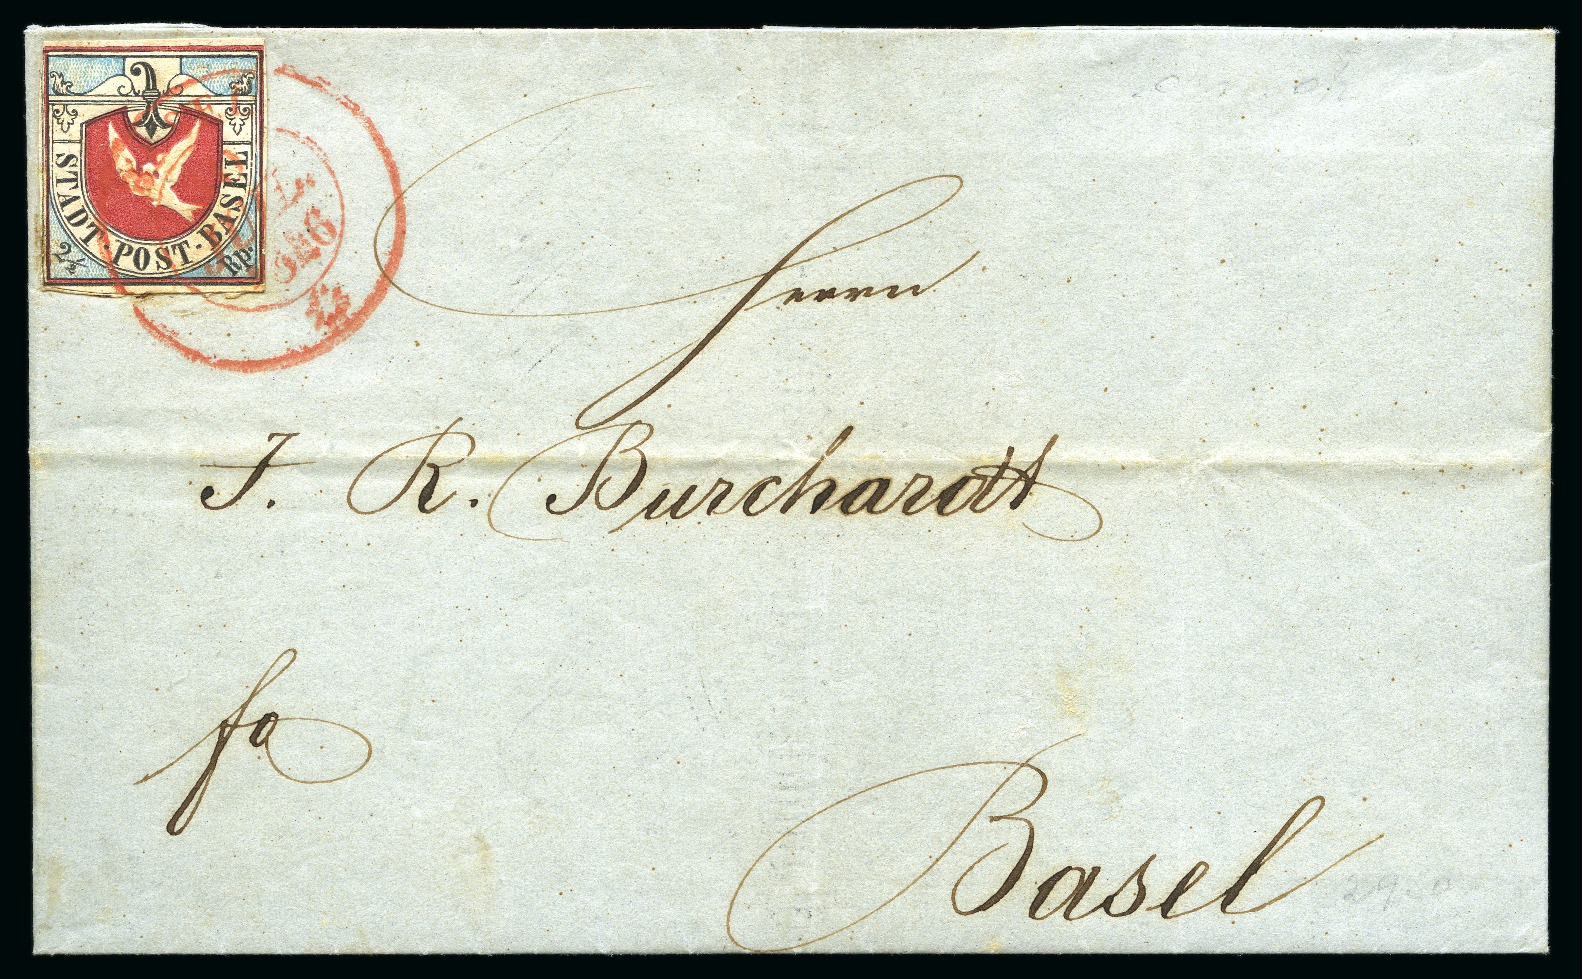 STADT·POST·BASEL
2½ Rp.
1846
Herrn
J. R. Burchardt
fo
Basel